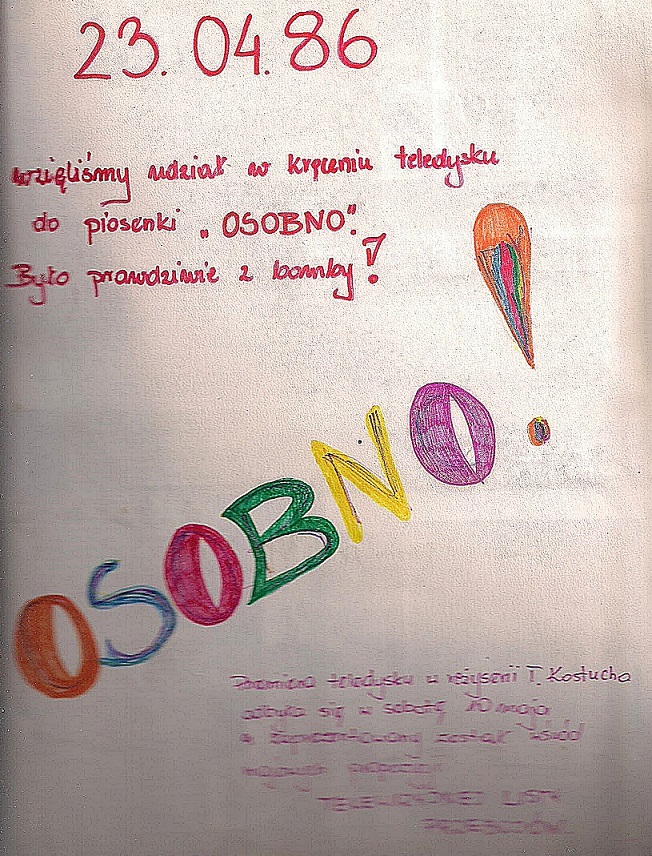 23.04.86
wzięliśmy udział w kręceniu teledysku
do piosenki „OSOBNO".
Było prawdziwie z bomby!
OSOBNO!
Premiera teledysku w reżyserii T. Kostucha
odbyła się w sobotę 10 maja
a zaprezentowany został wśród
majowych propozycji
TELEWIZYJNEJ LISTY
PRZEBOJÓW.